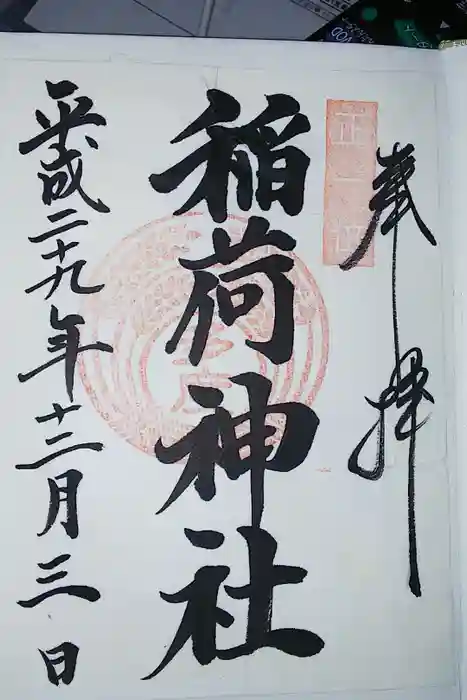 奉拝
正一位
稲荷神社
平成二十九年十二月三日